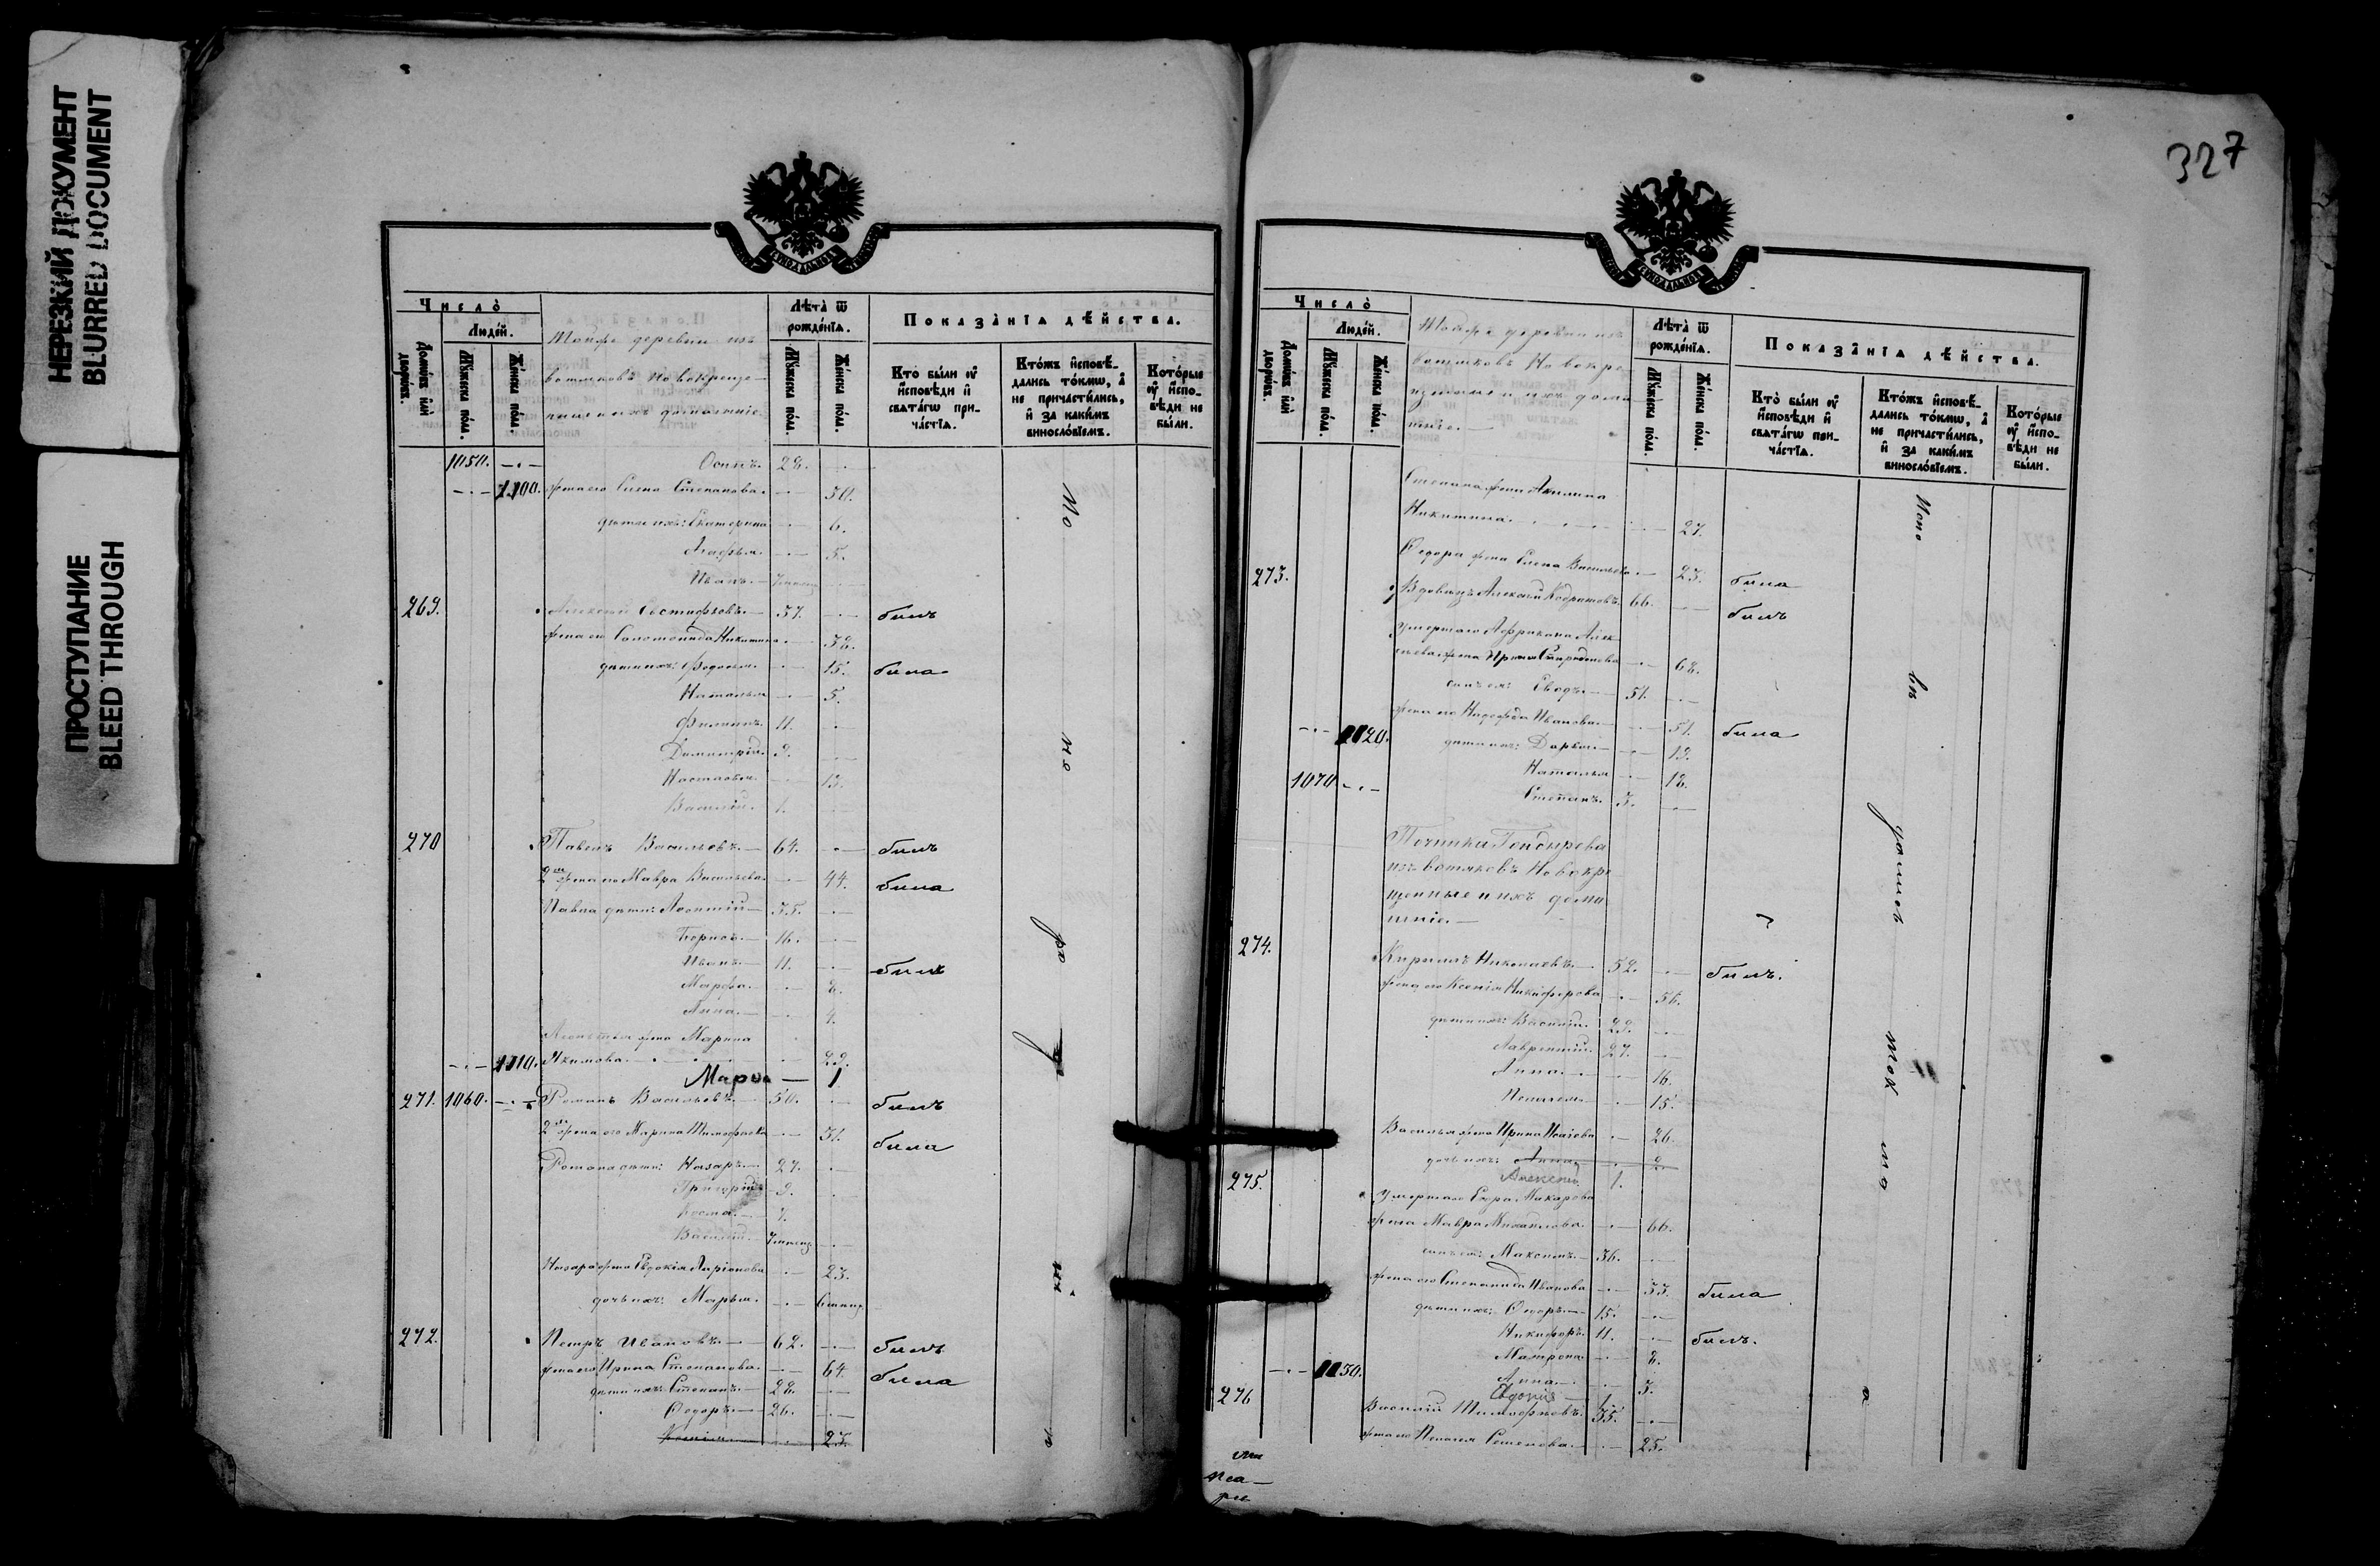 НЕРЕЗКИЙ ДОКУМЕНТ
BLURRED DOCUMENT
ПРОСТУПАНИЕ
BLEED THROUGH
327
Число̀
Людей.
Домовъ или дворовъ.
Мужеска полу.
Женска полу.
Тойже деревни изъ
вотяковъ новокреще-
ные и ихъ домашніе.
Лѣта ѿ рождєнїѧ.
Мужеска полу.
Женска полу.
Показанїѧ дѣйства.
Кто были оу исповѣди и свѧтагѡ причастїѧ.
Ктожъ исповѣдались токмѡ, а не причастились, и за какимъ винословїемъ.
Которые оу исповѣди не были.
1050. Осипъ. 28.
1100. жена его Елена Степанова. 30.
дети ихъ: Екатерина 6.
Агафья. 5.
Иванъ.
269. Алексей Евстафьевъ. 37. былъ
жена его Соломонида Никитина 38.
дети их: Федосья. 15. была
Наталья 5.
Филиппъ. 11.
Димитрій. 9.
Настасья. 13.
Василій. 1.
270 Павелъ Васильевъ. 64. былъ
2я жена его Мавра Васильева. 44. была
Павла дети: Леонтій 35.
Борисъ. 16.
Иванъ. 11. былъ
Марфа. 8.
Анна. 4.
Леонтья жена Марина
1110. Якимова. 29.
Марѳа 1
271. 1060. Романъ Васильевъ. 50. былъ
2я жена его Марина Тимофеева 51. была
Романа дети: Назаръ. 27.
Григорій 9.
Косма. 7.
Василій.
Назара жена Евдокія Ларіонова 23.
дочь ихъ: Марья.
272. Петръ Ивановъ. 62. былъ
жена его Ирина Степанова. 64. была
дети ихъ: Степанъ. 28.
Ѳедоръ. 26.
23.
Число̀
Людей.
Домовъ или дворовъ.
Мужеска полу.
Женска полу.
Тойже деревни изъ
вотяковъ Новокре
щенные и ихъ дома
шніе.
Лѣта ѿ рождєнїѧ.
Мужеска полу.
Женска полу.
Показанїѧ дѣйства.
Кто были оу исповѣди и свѧтагѡ причастїѧ.
Ктожъ исповѣдались токмѡ, а не причастились, и за какимъ винословїемъ.
Которые оу исповѣди не были.
Степана жена Акилина
Никитина. 27.
Ѳедора жена Елена Васильева. 23. была
273. Вдовецъ Алексей Кодратовъ. 66. былъ
умершаго Африкана Алек
сеева жена Ирина Спиридонова 68.
сынъ ея: Еводъ. 51.
жена его Надежда Иванова. 51. была
1120. дети их: Дарья. 19.
Наталья 18.
1070 Степанъ. 3.
Починка Гондырева
изъ вотяковъ Новокре
щенные и ихъ дома
шніе.
274. Кириллъ Николаевъ. 52. былъ.
жена его Ксенія Никифорова 56.
дети их: Василій. 29.
Лаврентій. 27.
Анна. 16.
Пелагея 15.
Василья жена Ирина Исаіева 26.
дочь ихъ: Анна 2.
Алексей 1.
275. умершаго Егора Макарова
жена Мавра Михайлова. 66.
сынъ ея: Максимъ. 36.
жена его Степанида Иванова 33. была
дети их: Ѳедоръ. 15.
Никифоръ. 11. былъ.
Матрона 8.
1130. Анна. 3.
276 Василій Тимофеевъ. 35.
жена его Пелагея Семенова. 25.